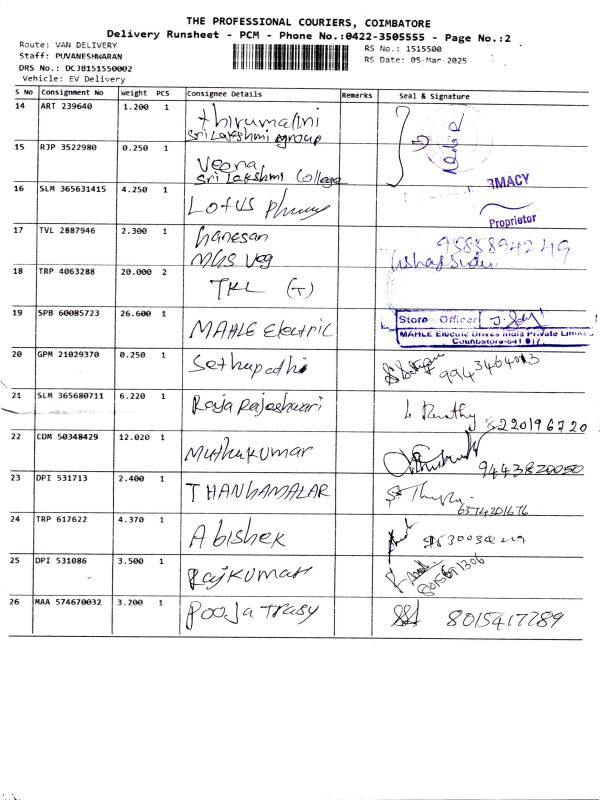 THE PROFESSIONAL COURIERS, COIMBATORE
Delivery Runsheet - PCM - Phone No.:0422-3505555 - Page No.:2
Route: VAN DELIVERY
Staff: PUVANESHWARAN
DRS No.: DCJB151550002
Vehicle: EV Delivery
RS No.: 1515500
RS Date: 05-Mar-2025
S No Consignment No Weight PCS Consignee Details Remarks Seal & Signature
14 ART 239640 1.200 1 Thirumalini
Sri Lakshmi group
15 RJP 3522980 0.250 1 Veena
Sri Lakshmi College
16 SLM 365631415 4.250 1 Lotus
RMACY
Proprietor
17 TVL 2887946 2.300 1 Ganesan
MGS Veg
9585894249
18 TRP 4063288 20.000 2 TKL (T)
19 SPB 60085723 26.600 1 MAHLE Electric
Store Officer
MAHLE Electric Drives India Private Limited
Coimbatore-641 017.
20 GPM 21029370 0.250 1 Sethupathi
9943464013
21 SLM 365680711 6.220 1 Raja Rajeshwari
8220196720
22 CDM 50348429 12.020 1 Muthukumar
9443820050
23 DPI 531713 2.400 1 THANGAMALAR
6374201676
24 TRP 617622 4.370 1 Abishek
25 DPI 531086 3.500 1 Rajkumar
26 MAA 574670032 3.200 1 Pooja Trasy
8015417289